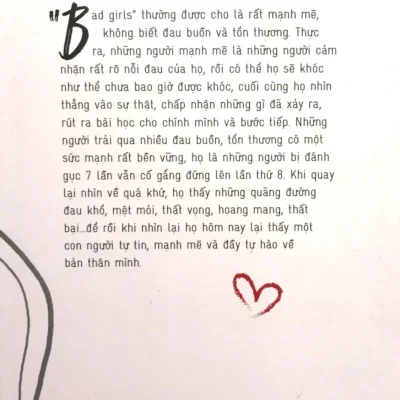 "Bad girls" thường được cho là rất mạnh mẽ,
không biết đau buồn và tổn thương. Thực
ra, những người mạnh mẽ là những người cảm
nhận rất rõ nỗi đau của họ, rồi có thể họ sẽ khóc
như thể chưa bao giờ được khóc, cuối cùng họ nhìn
thẳng vào sự thật, chấp nhận những gì đã xảy ra,
rút ra bài học cho chính mình và bước tiếp. Những
người trải qua nhiều đau buồn, tổn thương có một
sức mạnh rất bền vững, họ là những người bị đánh
gục 7 lần vẫn cố gắng đứng lên lần thứ 8. Khi quay
lại nhìn về quá khứ, họ thấy những quãng đường
đau khổ, mệt mỏi, thất vọng, hoang mang, thất
bại...để rồi khi nhìn lại họ hôm nay lại thấy một
con người tự tin, mạnh mẽ và đầy tự hào về
bản thân mình.